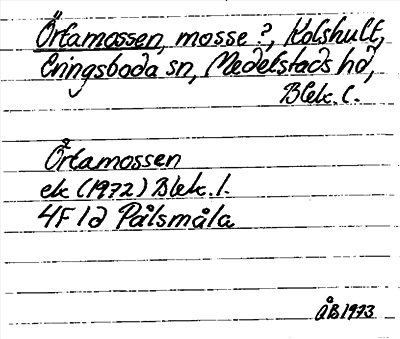 Örtamossen, mosse ?, Kolshult,
Eringsboda sn, Medelstads hd,
Blek. l.
Örtamossen
ek (1972) Blek. l.
4F 1d Pålsmåla
ÅB 1973